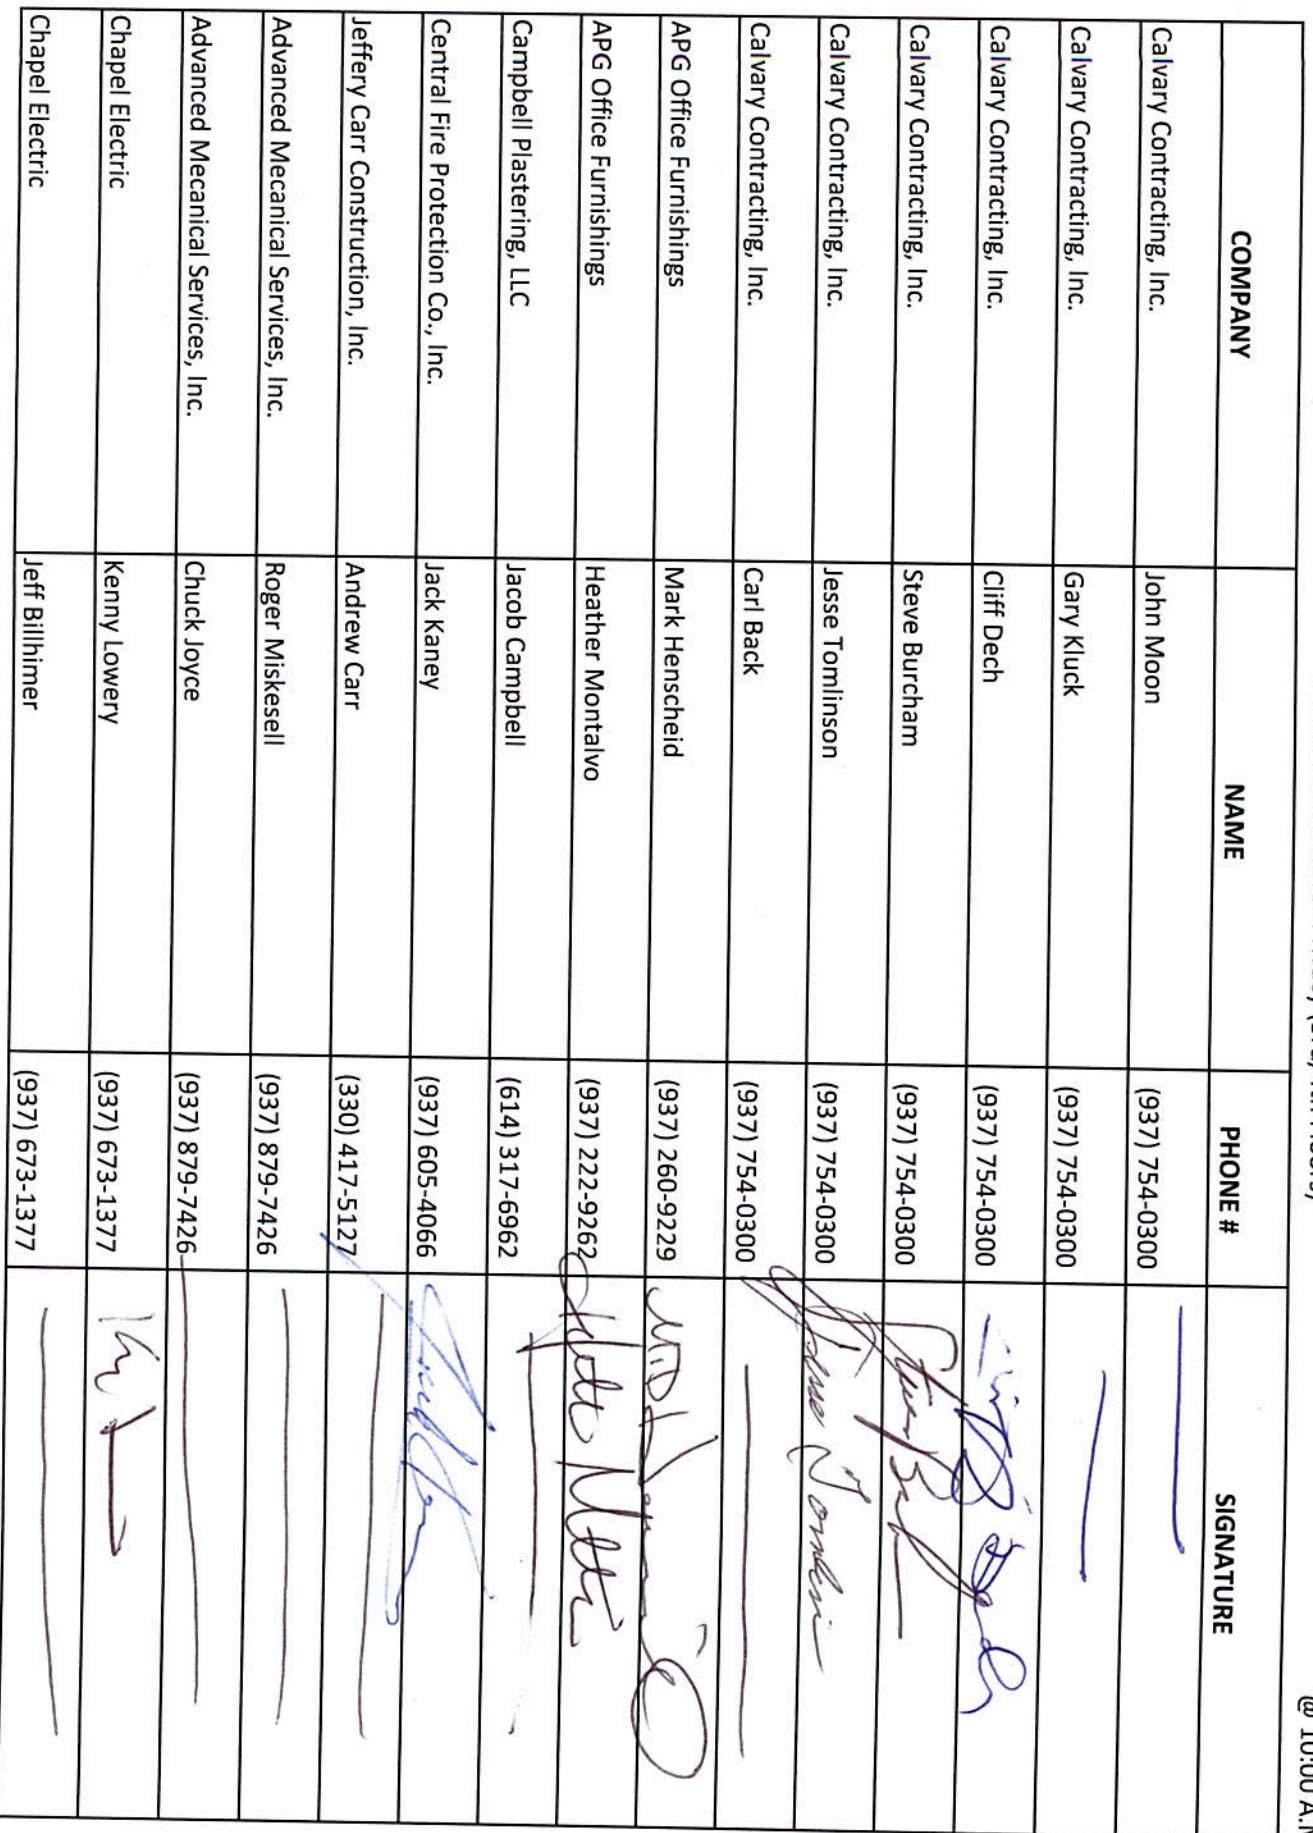 @ 10:00 A.M
COMPANY NAME PHONE # SIGNATURE
Calvary Contracting, Inc. John Moon (937) 754-0300
Calvary Contracting, Inc. Gary Kluck (937) 754-0300
Calvary Contracting, Inc. Cliff Dech (937) 754-0300
Calvary Contracting, Inc. Steve Burcham (937) 754-0300
Calvary Contracting, Inc. Jesse Tomlinson (937) 754-0300
Calvary Contracting, Inc. Carl Back (937) 754-0300
APG Office Furnishings Mark Henscheid (937) 260-9229
APG Office Furnishings Heather Montalvo (937) 222-9262
Campbell Plastering, LLC Jacob Campbell (614) 317-6962
Central Fire Protection Co., Inc. Jack Kaney (937) 605-4066
Jeffery Carr Construction, Inc. Andrew Carr (330) 417-5127
Advanced Mecanical Services, Inc. Roger Miskesell (937) 879-7426
Advanced Mecanical Services, Inc. Chuck Joyce (937) 879-7426
Chapel Electric Kenny Lowery (937) 673-1377
Chapel Electric Jeff Billhimer (937) 673-1377